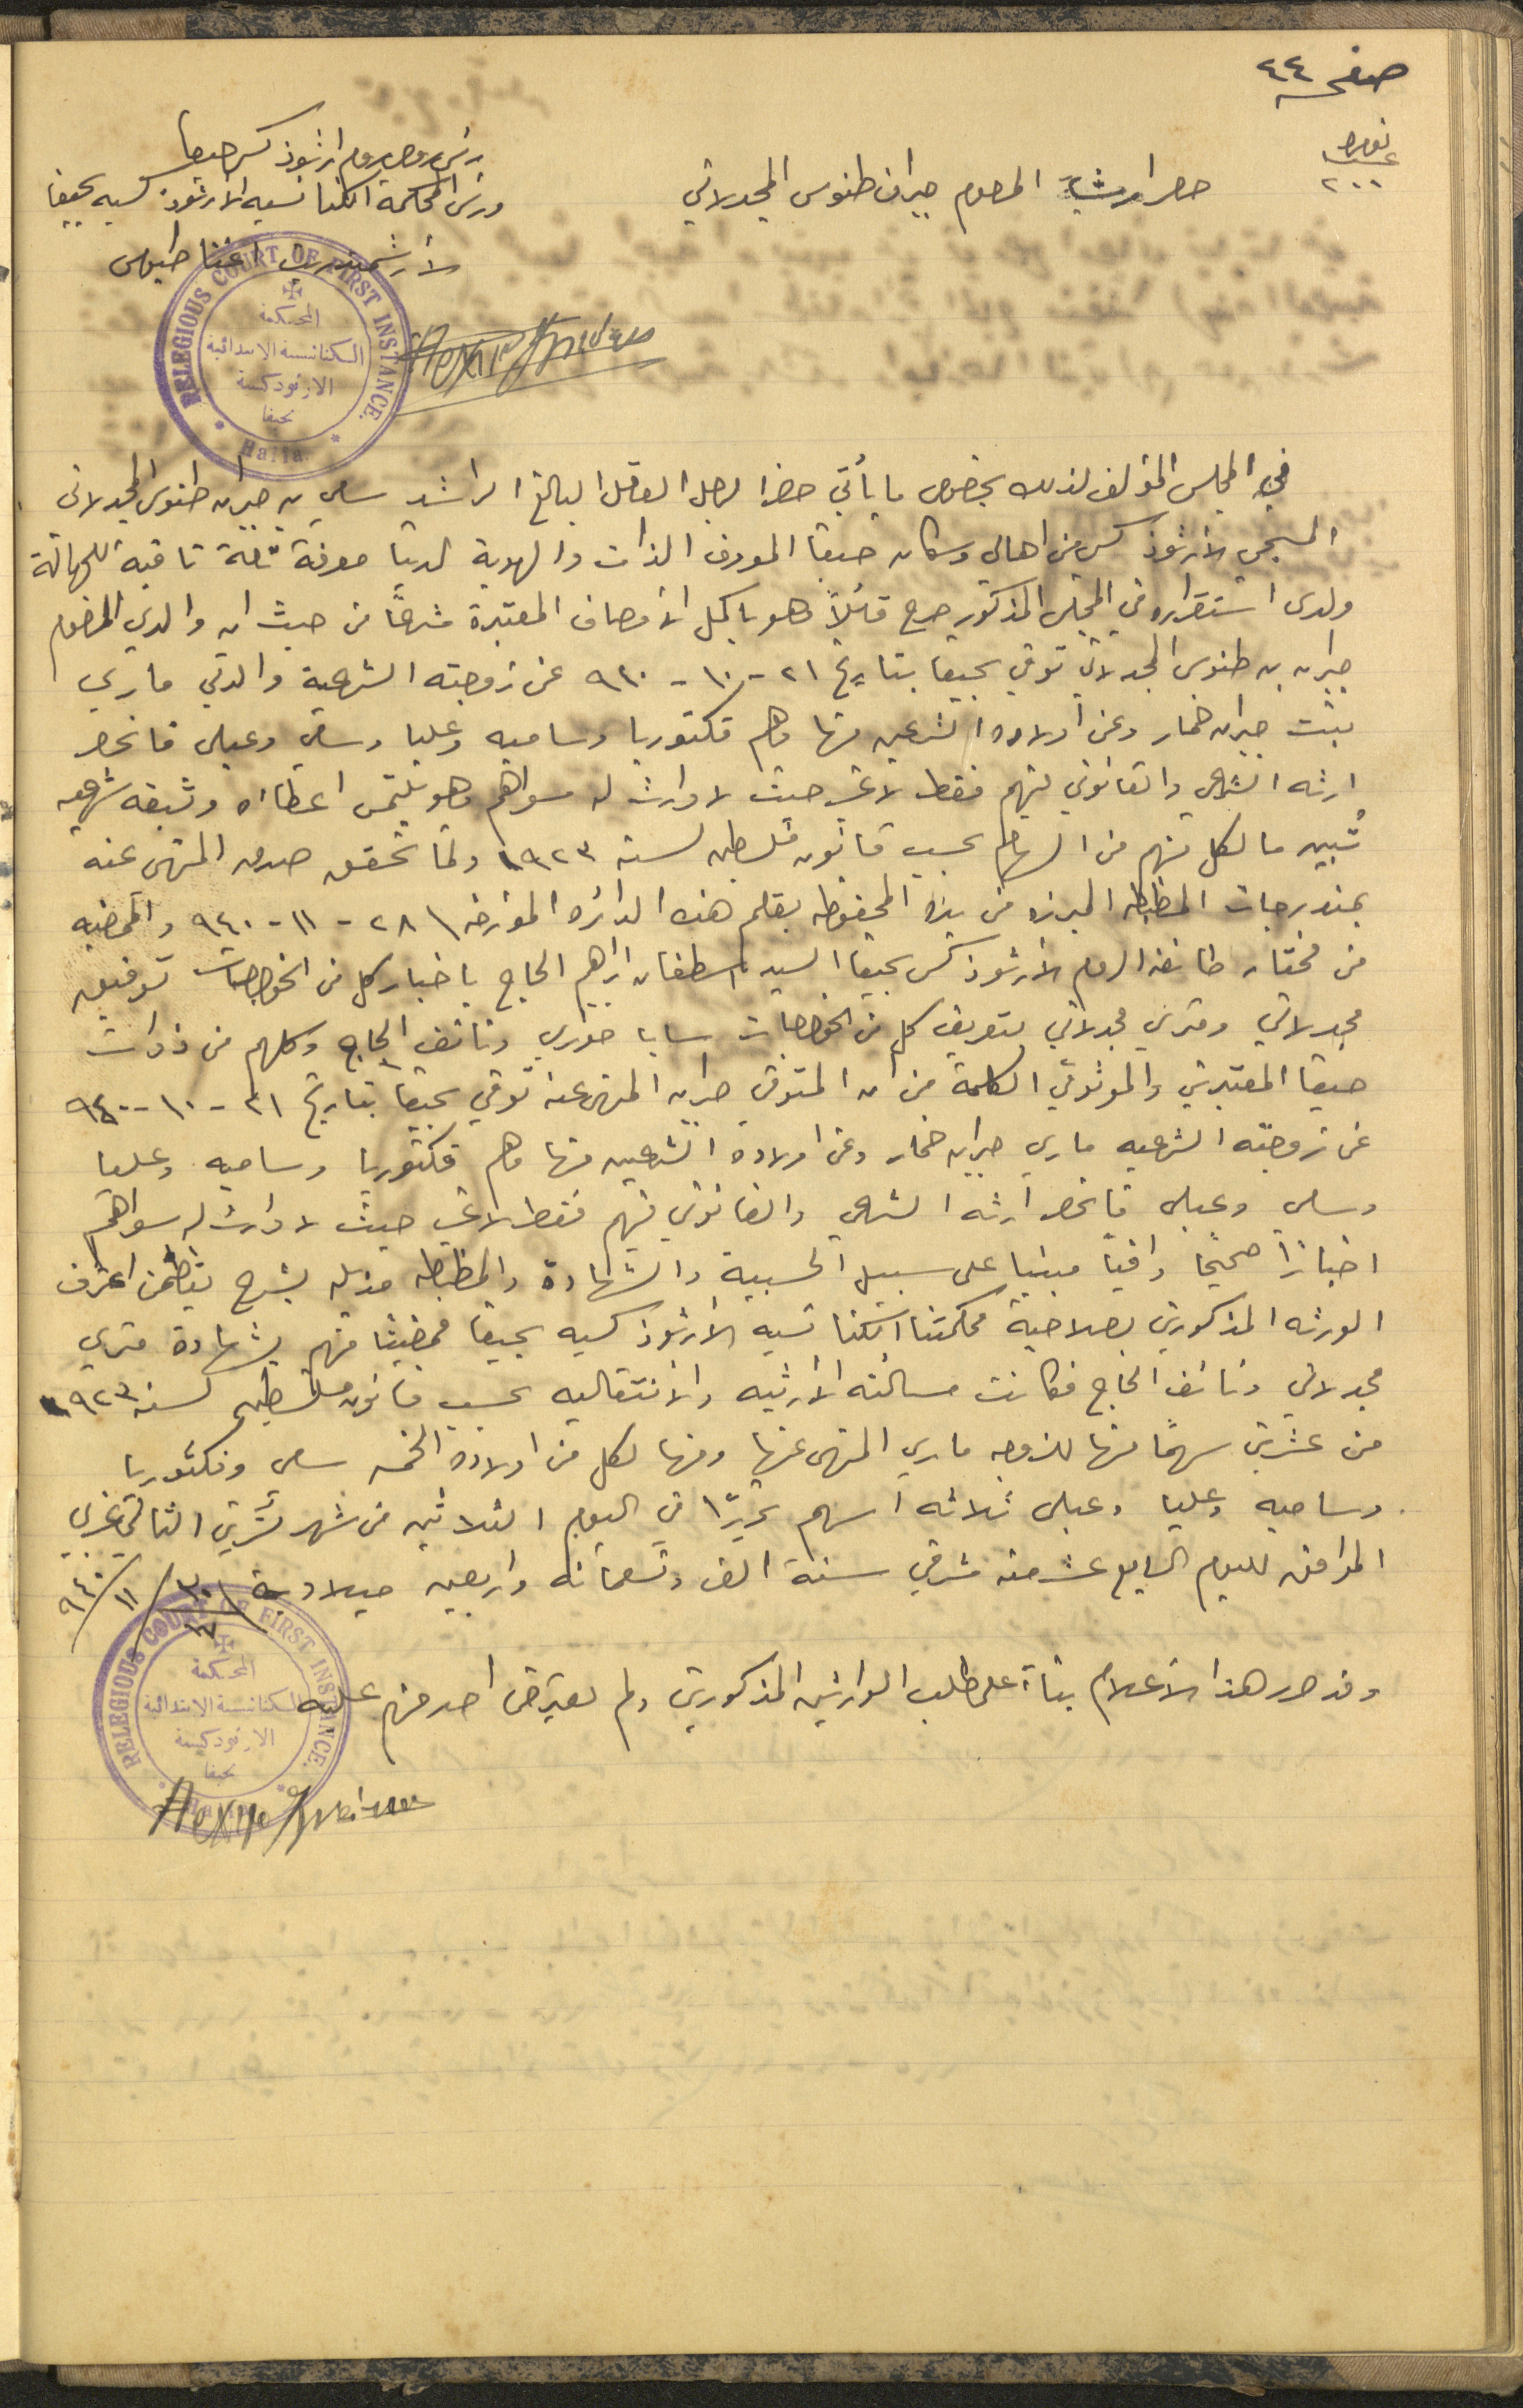 صفحه ٤٤
نومره
٢٠٠
حصر ارث المرحوم جبران طنوس المجدلاني
رئيس روحي روم ارثوذكس حيفا
ورئيس المحكمة الكنائسيه الارثوذكسيه بحيفا
الارشمندريت اغناطيوس
RELEGIOUS COURT OF FIRST INSTANCE.
المحكمة
الكنائسية الابتدائية
الارثوذكسية
بحيفا
Haifa
في المجلس المؤلف لذلك بخصوص ما يأتي حضر الرجل العاقل البالغ الراشد سامي بن جبران طنوس المجدلاني
المسيحي الارثوذكسي من اهالي وسكان حيفا المعروف الذات والهوية لدينا معرفة تامة نافية للجهالة
ولدى استقراره في المجلس المذكور صرح قائلاً وهو باكمل الأوصاف المعتبرة شرعًا من حيث ان والدي المرحوم
جبران بن طنوس المجدلاني توفي بحيفا بتاريخ ٢١ - ١٠ - ٩٤٠ عن زوجته الشرعية والدتي ماري
بنت جبران خمار وعن أولاده الشرعيين منها وهم فكتوريا وساميه وعليا وسامي وعبلى فانحصر
ارثه الشرعي والقانوني فيهم فقط لا غير حيث لا وارث له سواهم وهو يلتمس اعطاءه وثيقه شرعيه
تُبين ما لكل منهم من السهام بحسب قانون فلسطين لسنة ١٩٢٣ ولما تحقق صدق المنهى عنه
بمندرجات المظبطه المبرزه من يده المحفوظه بقلم هذه الدائره المؤرخه ٢٨ - ١١ - ٩٤٠ والممضيه
من مختار طائفة الروم الارثوذكس بحيفا السيد اسطفان ابراهيم الحاج باخبار كل من الخواجات توفيق
مجدلاني ومتري مجدلاني بتعريف كل من الخواجات سابا خوري ونائف الحاج وكلهم من ذوات
حيفا المعتبرين والموثوقي الكلمة من ان المتوفى جبران المنهى عنه توفي بحيفا بتاريخ ٢١ - ١٠ - ٩٤٠
عن زوجته الشرعيه ماري جبران خمار وعن اولاده الشرعيين منها وهم فكتوريا وساميه وعليا
وسامي وعبلى فانحصر ارثه الشرعي والقانوني فيهم فقط لا غير حيث لا وارث له سواهم
اخبارًا صحيحًا وافيًا مبنيا على سبيل الحسبية والشهادة والمظبطه مذيله بشرح يتضمن اعتراف
الورثه المذكورين بصلاحية محكمتنا الكنائسيه الارثوذكسيه بحيفا ممضيًا منهم بشهادة متري
مجدلاني ونائف الحاج فكانت مسألته الأرثيه والانتقاليه بحسب قانون فلسطين لسنة ١٩٢٣
من عشرين سهمًا منها للزوجه ماري المنهى عنها ومنها لكل من اولاده الخمسه سامي وفكتوريا
وساميه وعليا وعبلى ثلاثه اسهم تحريرًا في اليوم الثلاثين من شهر تشرين الثاني غربي
الموافق لليوم السابع عشر منه شرقي سنة الف وتسعمائه واربعين ميلادية ٣٠/١١/٩٤٠
١٧
وقد صدر هذا الاعلام بناءً على طلب الوارثين المذكورين ولم يعترض احد منهم عليه
RELEGIOUS COURT OF FIRST INSTANCE.
المحكمة
الكنائسية الابتدائية
الارثوذكسية
بحيفا